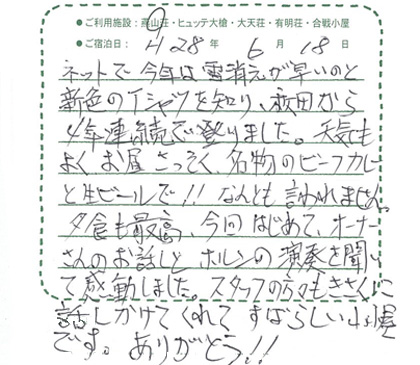 ●ご利用施設：燕山荘・ヒュッテ大槍・大天荘・有明荘・合戦小屋
●ご宿泊日：H28年 6月 18日
ネットで今年は雪消えが早いのと
新色のTシャツを知り、秋田から
4年連続で登りました。天気も
よくお昼さっそく、名物のビーフカレー
と生ビールで!! なんとも言われません。
夕食も最高、今回はじめて、オーナー
さんのお話しと ホルンの演奏を聞い
て感動しました。スタッフの方々もきさくに
話しかけてくれて すばらしい山小屋
です。ありがとう!!